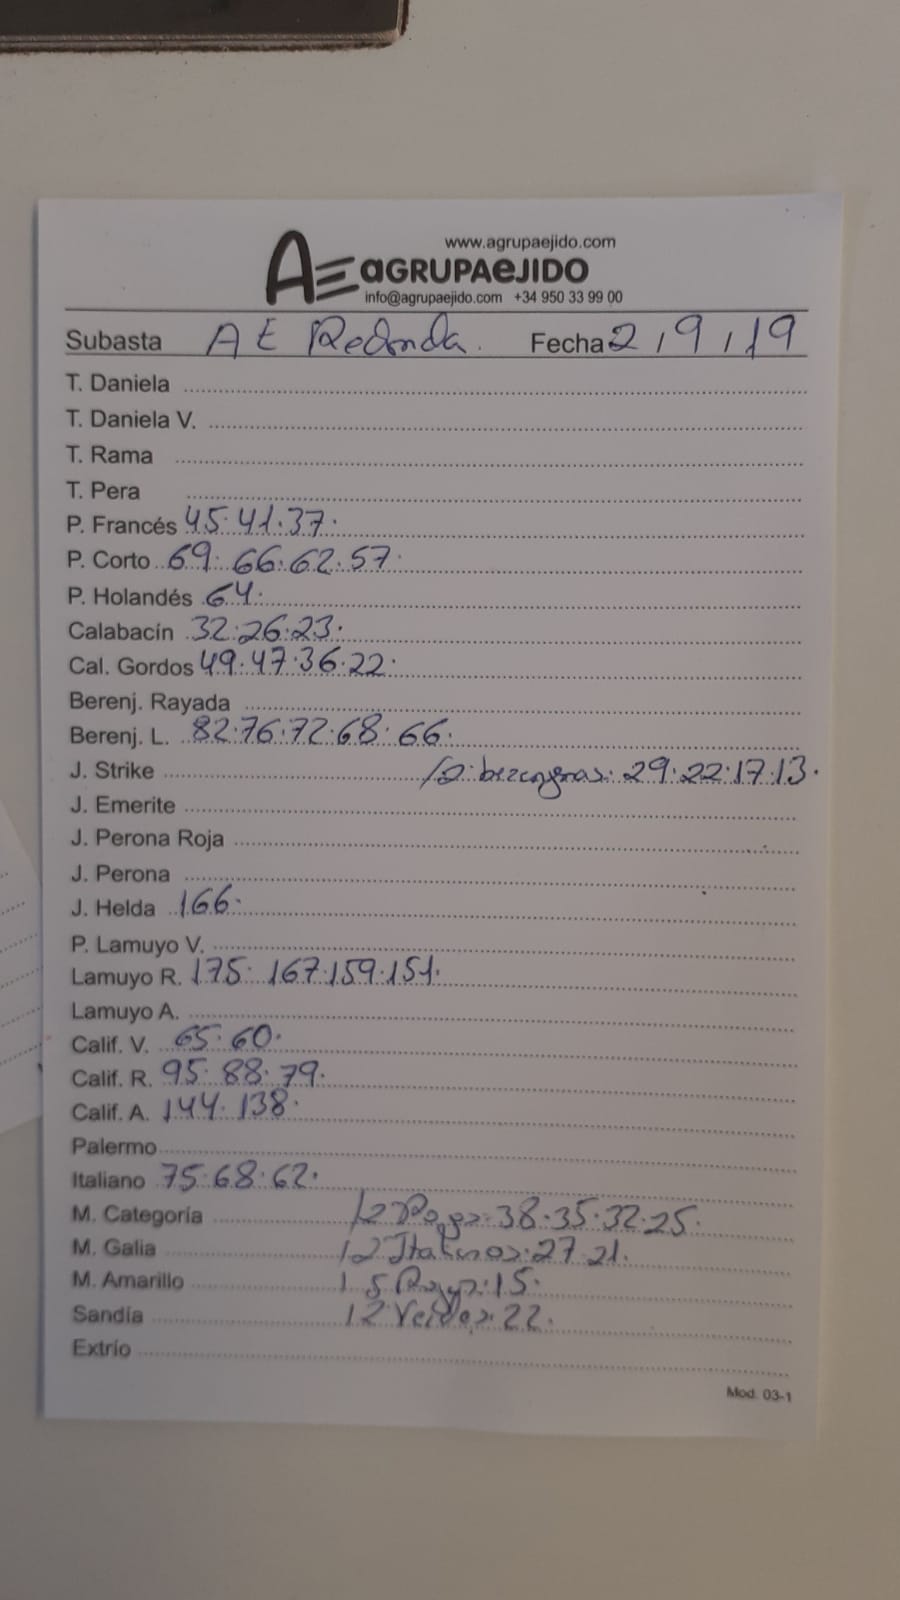 www.agrupaejido.com
AE aGRUPAeJIDO
info@agrupaejido.com +34 950 33 99 00
Subasta AE Redonda. Fecha 2,9,19
T. Daniela
T. Daniela V.
T. Rama
T. Pera
P. Francés 45.41.37.
P. Corto 69.66.62.57.
P. Holandés 64.
Calabacín 32.26.23.
Cal. Gordos 49.47.36.22.
Berenj. Rayada
Berenj. L. 82.76.72.68.66.
J. Strike /2 berengenas: 29.22.17.13.
J. Emerite
J. Perona Roja
J. Perona
J. Helda 166.
P. Lamuyo V.
Lamuyo R. 175.167.159.151.
Lamuyo A.
Calif. V. 65.60.
Calif. R. 95.88.79.
Calif. A. 144.138.
Palermo
Italiano 75.68.62.
M. Categoría /2 Rojos: 38.35.32.25.
M. Galia 12 Italianos: 27.21.
M. Amarillo 15.
Sandía 12 Verdes: 22.
Extrío
Mod. 03-1